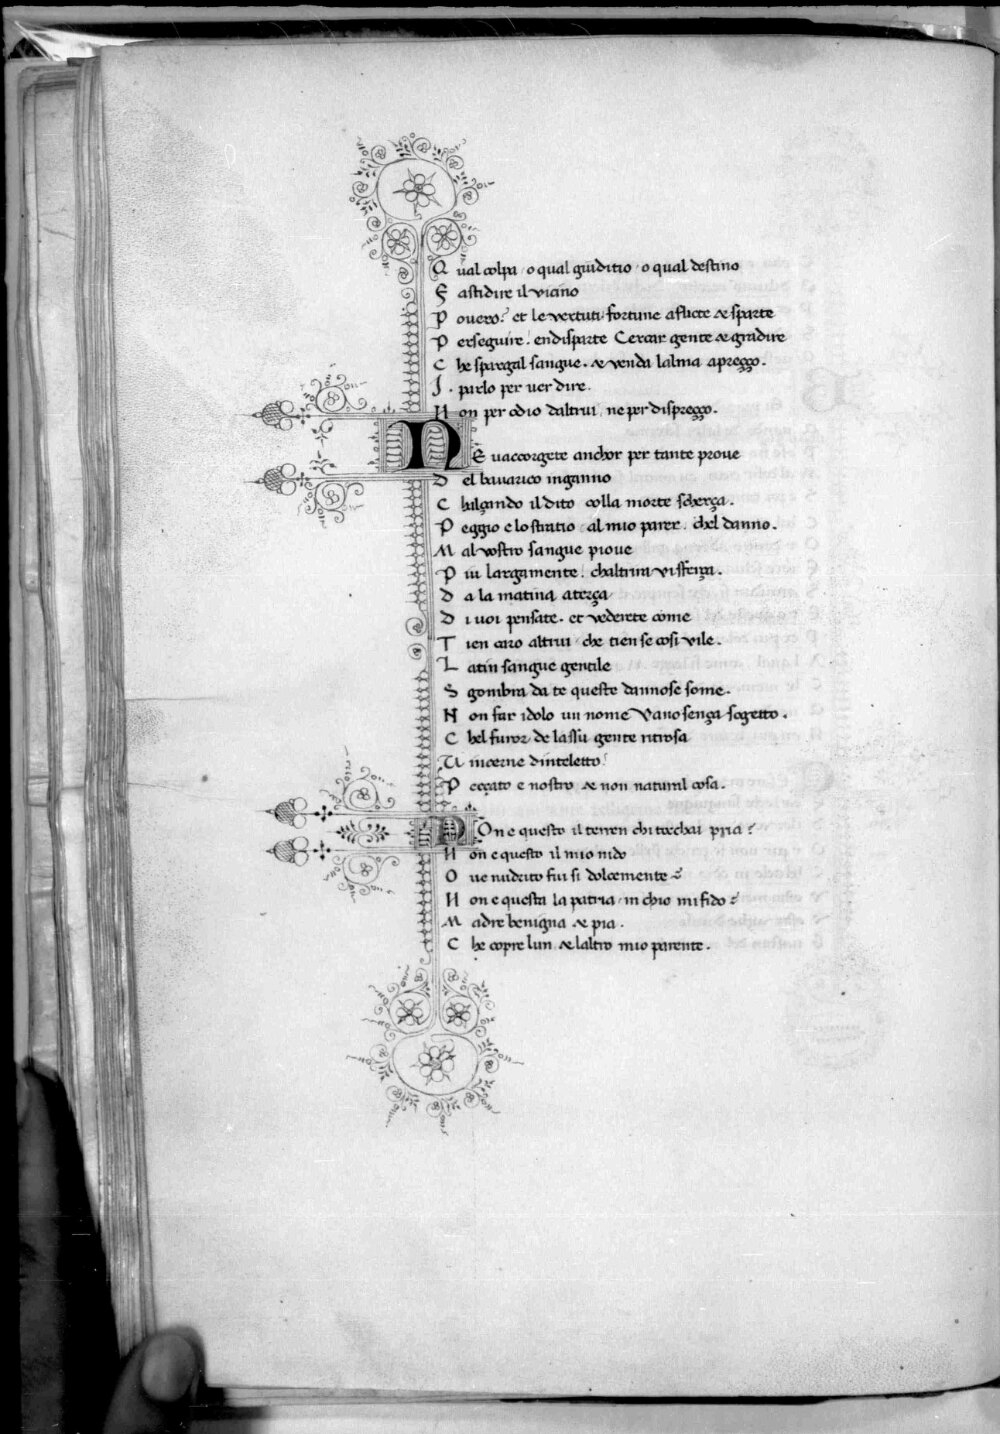 Qual colpa, o qual giuditio, o qual destino
Fastidire il vicino
Povero? et le vertuti fortune aflicte & sparte
Perseguire! endisparte Cercar gente & gradire
Che spargal sangue. & venda lalma a preçço.
I. parlo per ver dire.
Non per odio daltrui, ne per dispreçço.
Ne vaccorgete anchor per tante prove
Del bavarico inganno
Chalçando il dito colla morte scherça.
Peggio e lo stratio al mio parer, chel danno.
Mal vostro sangue piove
Piu largamente! chaltrira vi sferça.
Da la matina a terça
Di voi pensate. et vederete come
Tien caro altrui che tien se cosi vile.
Latin sangue gentile
Sgombra da te queste dannose some.
Non far idolo un nome Vano sença sogetto.
Chel furor de lassu gente ritrosa
Vincerne dinteletto!
Peccato e nostro & non natural cosa.
Non e questo il terren chi tocchai pria?
Non e questo il mio nido
Ove nudrito fui si dolcemente?
Non e questa la patria in chio mi fido?
Madre benigna & pia.
Che copre lun & laltro mio parente.